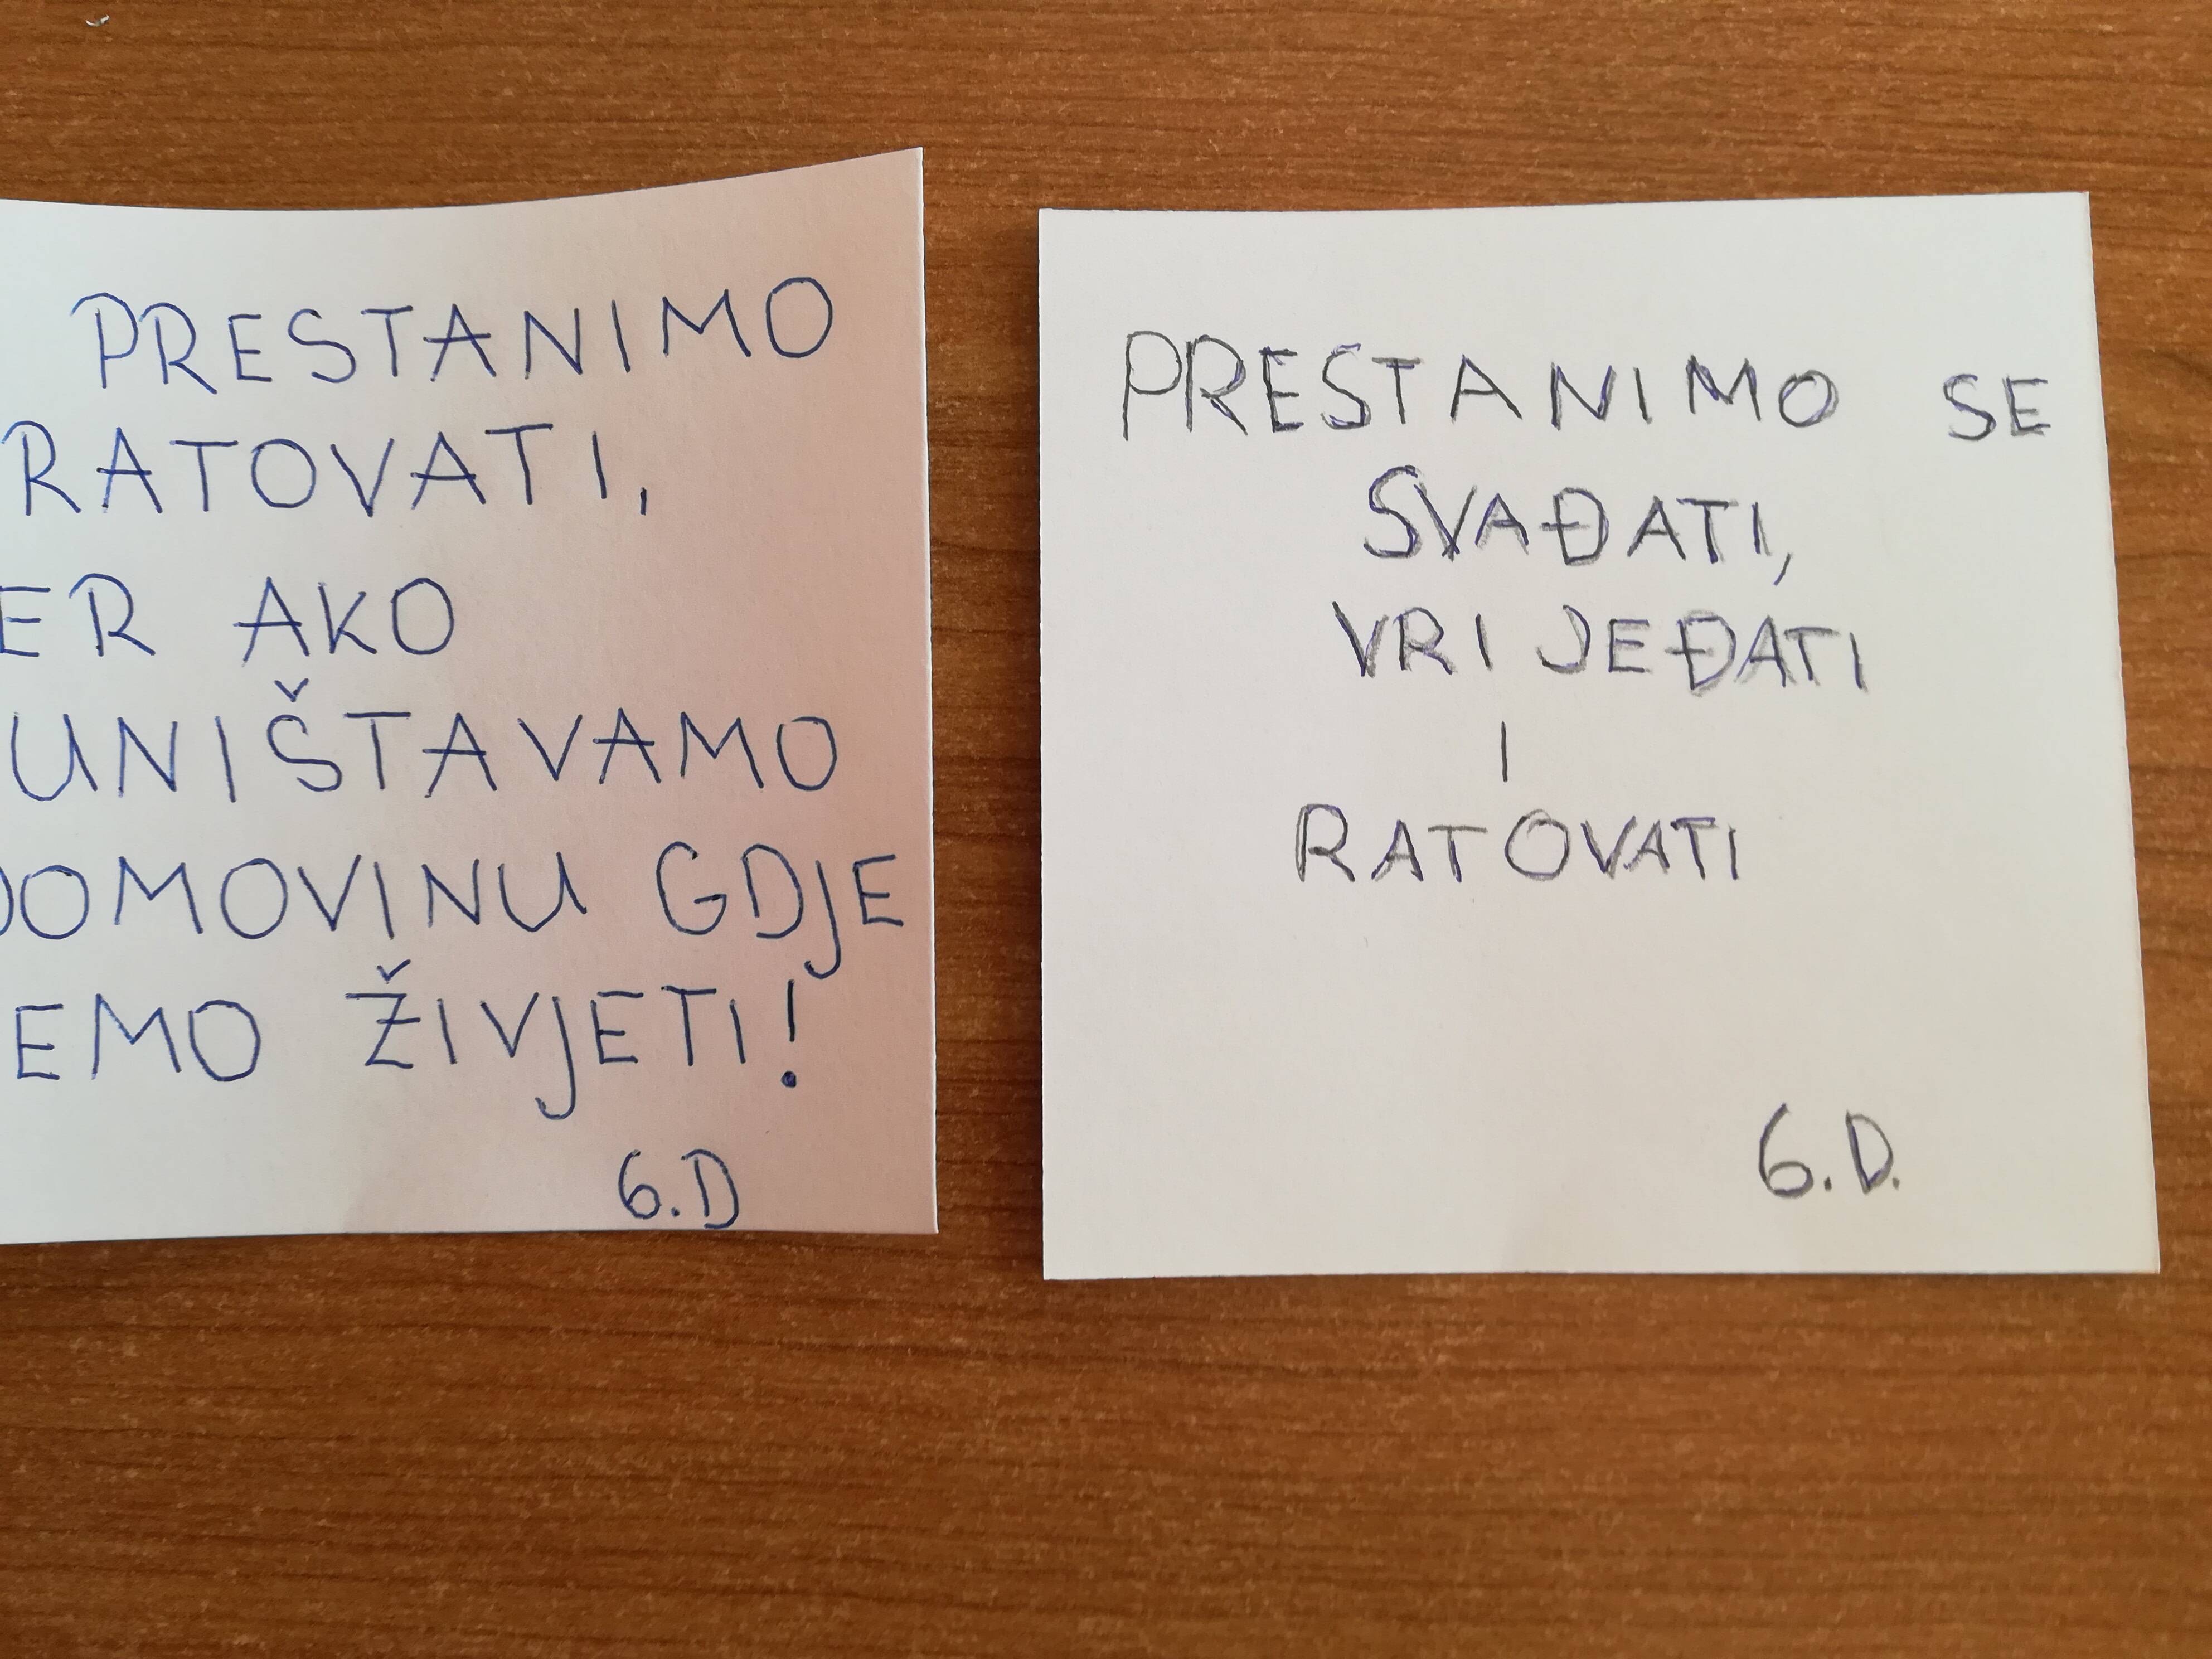 PRESTANIMO
RATOVATI,
ER AKO
UNIŠTAVAMO
DOMOVINU GDJE
EMO ŽIVJETI!
6.D
PRESTANIMO SE
SVAĐATI,
VRIJEĐATI
I
RATOVATI
6.D.